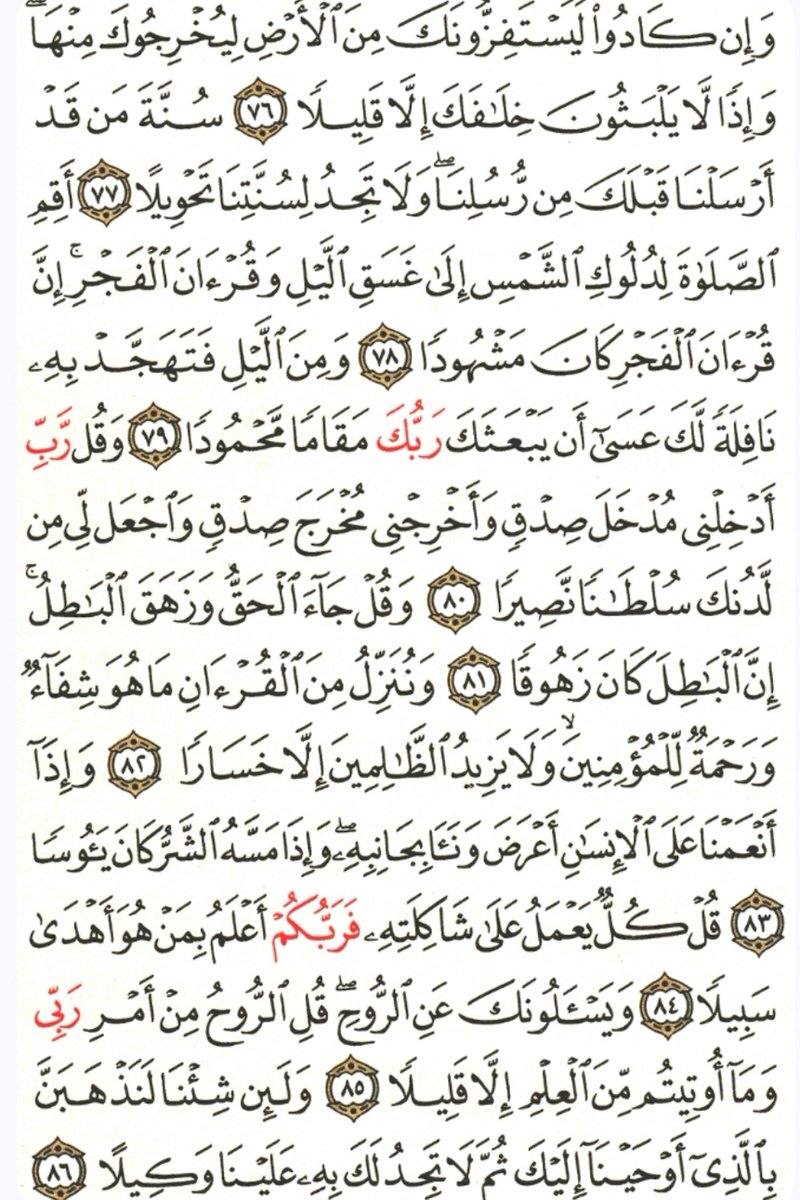 وَإِن كَادُوا۟ لَيَسْتَفِزُّونَكَ مِنَ ٱلْأَرْضِ لِيُخْرِجُوكَ مِنْهَا ۖ
وَإِذًا لَّا يَلْبَثُونَ خِلَـٰفَكَ إِلَّا قَلِيلًا ٧٦ سُنَّةَ مَن قَدْ
أَرْسَلْنَا قَبْلَكَ مِن رُّسُلِنَا ۖ وَلَا تَجِدُ لِسُنَّتِنَا تَحْوِيلًا ٧٧ أَقِمِ
ٱلصَّلَوٰةَ لِدُلُوكِ ٱلشَّمْسِ إِلَىٰ غَسَقِ ٱلَّيْلِ وَقُرْءَانَ ٱلْفَجْرِ ۚ إِنَّ
قُرْءَانَ ٱلْفَجْرِ كَانَ مَشْهُودًا ٧٨ وَمِنَ ٱلَّيْلِ فَتَهَجَّدْ بِهِۦ
نَافِلَةً لَّكَ عَسَىٰٓ أَن يَبْعَثَكَ رَبُّكَ مَقَامًا مَّحْمُودًا ٧٩ وَقُل رَّبِّ
أَدْخِلْنِى مُدْخَلَ صِدْقٍ وَأَخْرِجْنِى مُخْرَجَ صِدْقٍ وَٱجْعَل لِّى مِن
لَّدُنكَ سُلْطَـٰنًا نَّصِيرًا ٨٠ وَقُلْ جَآءَ ٱلْحَقُّ وَزَهَقَ ٱلْبَـٰطِلُ ۚ
إِنَّ ٱلْبَـٰطِلَ كَانَ زَهُوقًا ٨١ وَنُنَزِّلُ مِنَ ٱلْقُرْءَانِ مَا هُوَ شِفَآءٌ
وَرَحْمَةٌ لِّلْمُؤْمِنِينَ ۙ وَلَا يَزِيدُ ٱلظَّـٰلِمِينَ إِلَّا خَسَارًا ٨٢ وَإِذَآ
أَنْعَمْنَا عَلَى ٱلْإِنسَـٰنِ أَعْرَضَ وَنَـَٔا بِجَانِبِهِۦ ۖ وَإِذَا مَسَّهُ ٱلشَّرُّ كَانَ يَـُٔوسًا
٨٣ قُلْ كُلٌّ يَعْمَلُ عَلَىٰ شَاكِلَتِهِۦ فَرَبُّكُمْ أَعْلَمُ بِمَنْ هُوَ أَهْدَىٰ
سَبِيلًا ٨٤ وَيَسْـَٔلُونَكَ عَنِ ٱلرُّوحِ ۖ قُلِ ٱلرُّوحُ مِنْ أَمْرِ رَبِّى
وَمَآ أُوتِيتُم مِّنَ ٱلْعِلْمِ إِلَّا قَلِيلًا ٨٥ وَلَئِن شِئْنَا لَنَذْهَبَنَّ
بِٱلَّذِىٓ أَوْحَيْنَآ إِلَيْكَ ثُمَّ لَا تَجِدُ لَكَ بِهِۦ عَلَيْنَا وَكِيلًا ٨٦